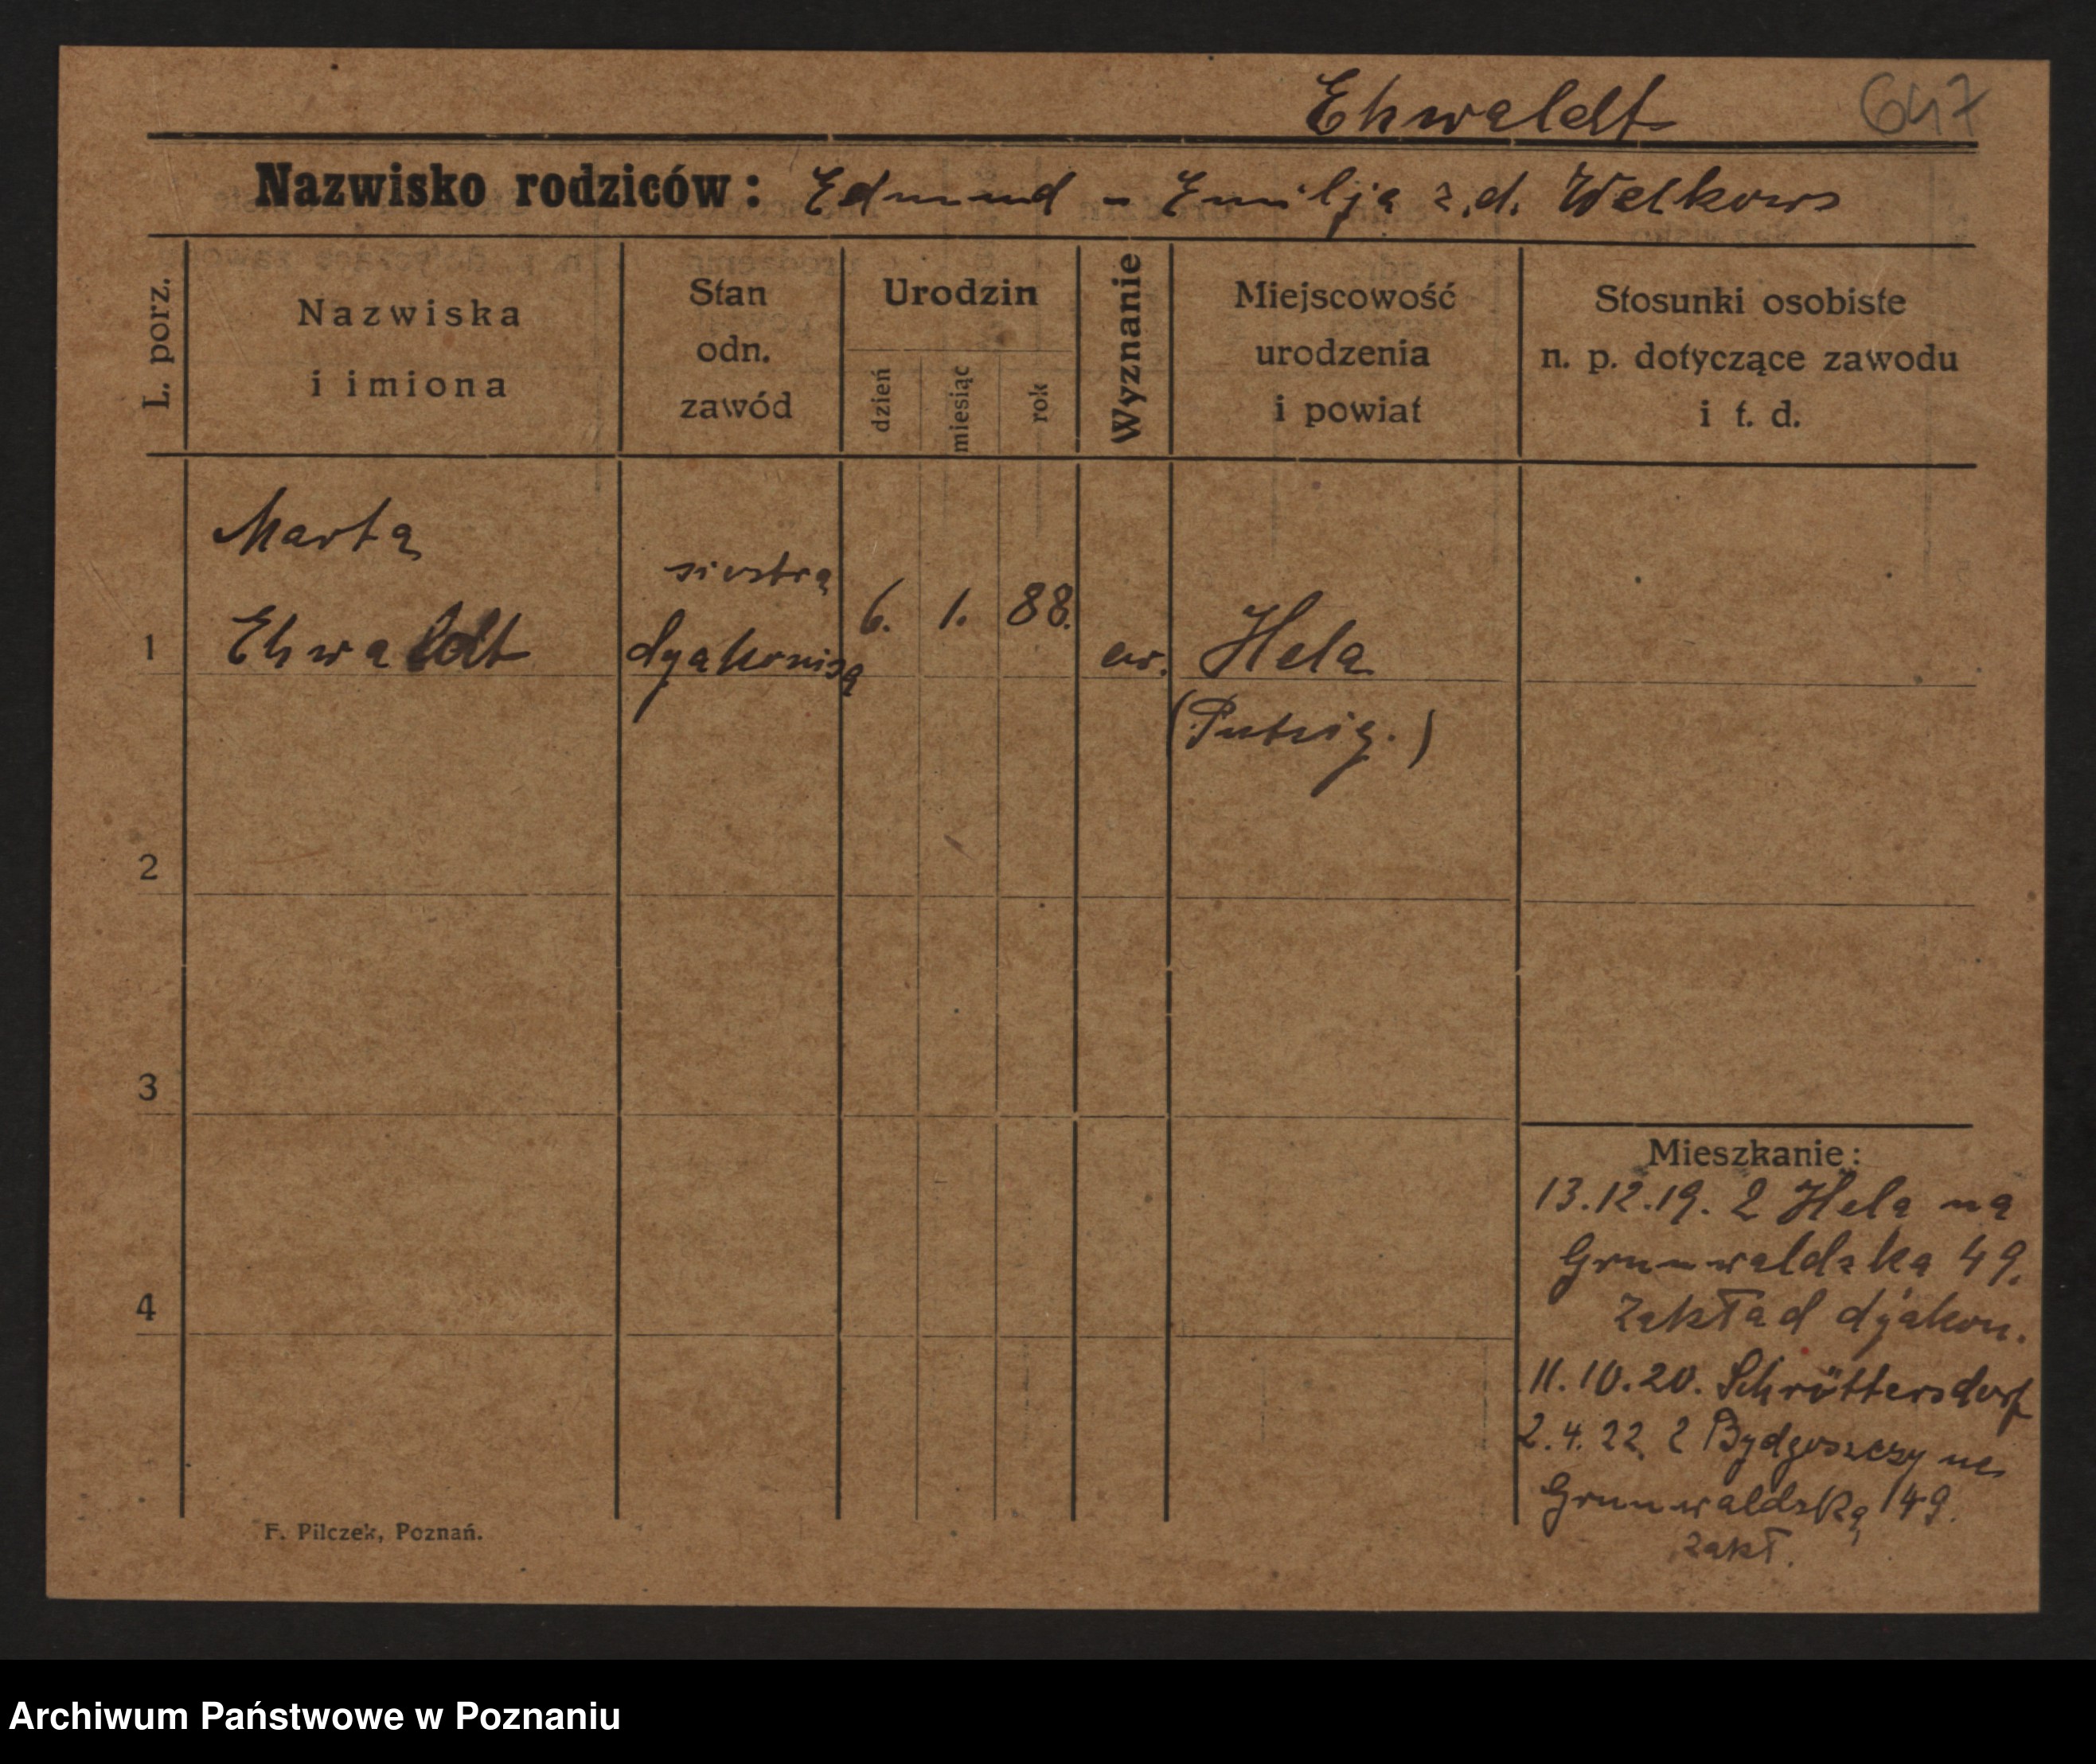 Ehwaldt 647
Nazwisko rodziców: Edmund - Emilja z.d. Welkows
L. porz.
Nazwiska
i imiona
Stan
odn.
zawód
Urodzin
dzień
miesiąc
rok
Wyznanie
Miejscowość
urodzenia
i powiat
Stosunki osobiste
n. p. dotyczące zawodu
i t. d.
Marta
siostra
1 Ehwaldt dyakonisa 6. 1. 88. ew. Hela
(Putzig.)
2
3
4
Mieszkanie:
13.12.19. z Hela na
Grunwaldzka 49.
zakład dyakon.
11.10.20. Schröttersdorf
2.4.22. z Bydgoszczy na
Grunwaldzką 49.
zakł.
F. Pilczek, Poznań.
Archiwum Państwowe w Poznaniu